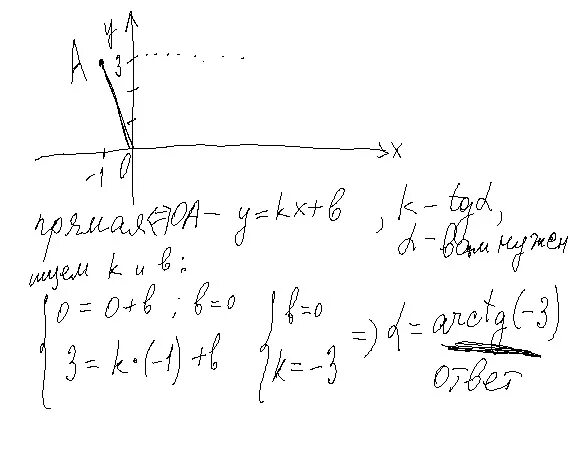 y
A 3
-1 0 x
прямая <=> OA - y = kx + b , k - tgα,
α - вам нужен
ищем k и b:
0 = 0 + b ; b = 0
3 = k · (-1) + b
b = 0
k = -3
=> α = arctg(-3)
ответ